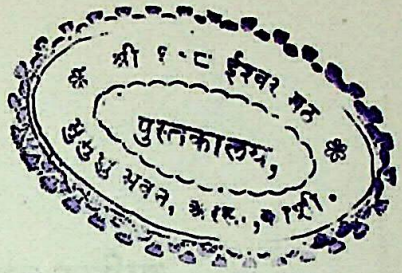 श्री १-८ ईश्वर मठ
पुस्तकालय,
मुमुक्षु भवन, वाशी.